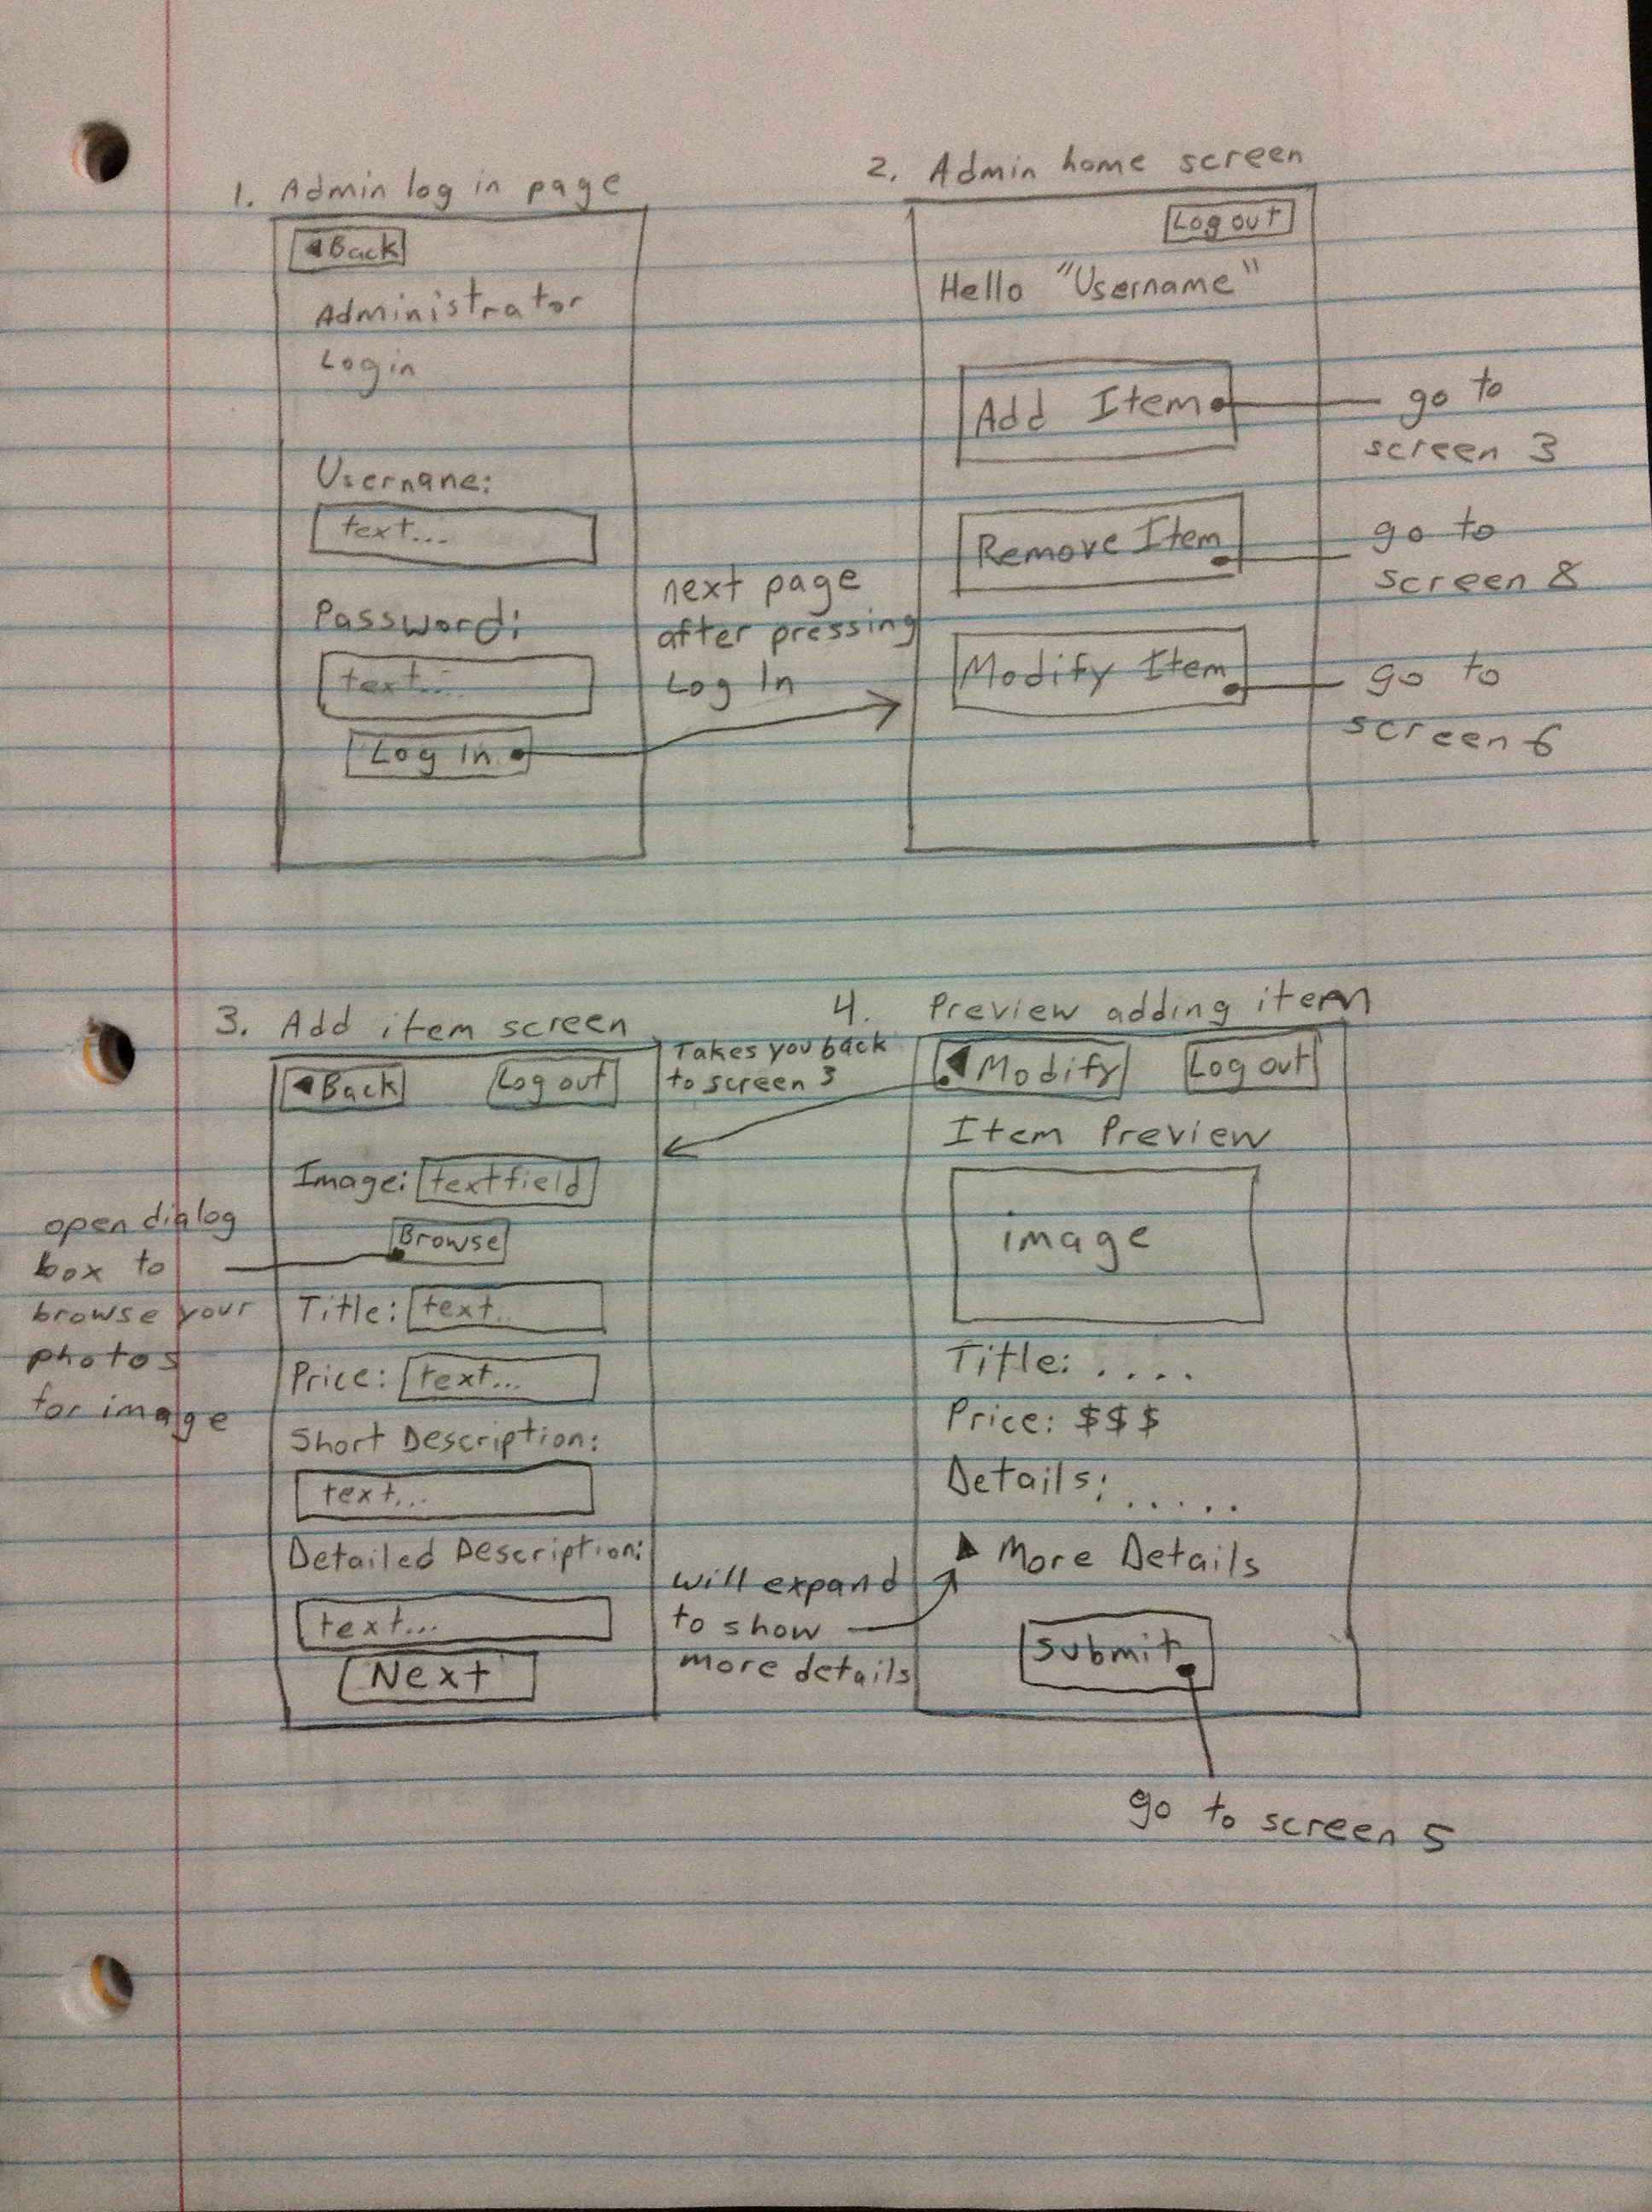 1. Admin log in page
◀Back
Administrator
Login
Username:
text...
Password:
text...
Log In
next page
after pressing
Log In
2. Admin home screen
Log out
Hello "Username"
Add Item
go to
screen 3
Remove Item
go to
screen 8
Modify Item
go to
screen 6
3. Add item screen
◀Back Log out
Image: textfield
Browse
open dialog
box to
browse your
photos
for image
Title: text..
Price: text...
Short Description:
text...
Detailed Description:
text...
Next
Takes you back
to screen 3
4. Preview adding item
◀Modify Log out
Item Preview
image
Title: ....
Price: $$$
Details: .....
▶ More Details
will expand
to show
more details
Submit
go to screen 5